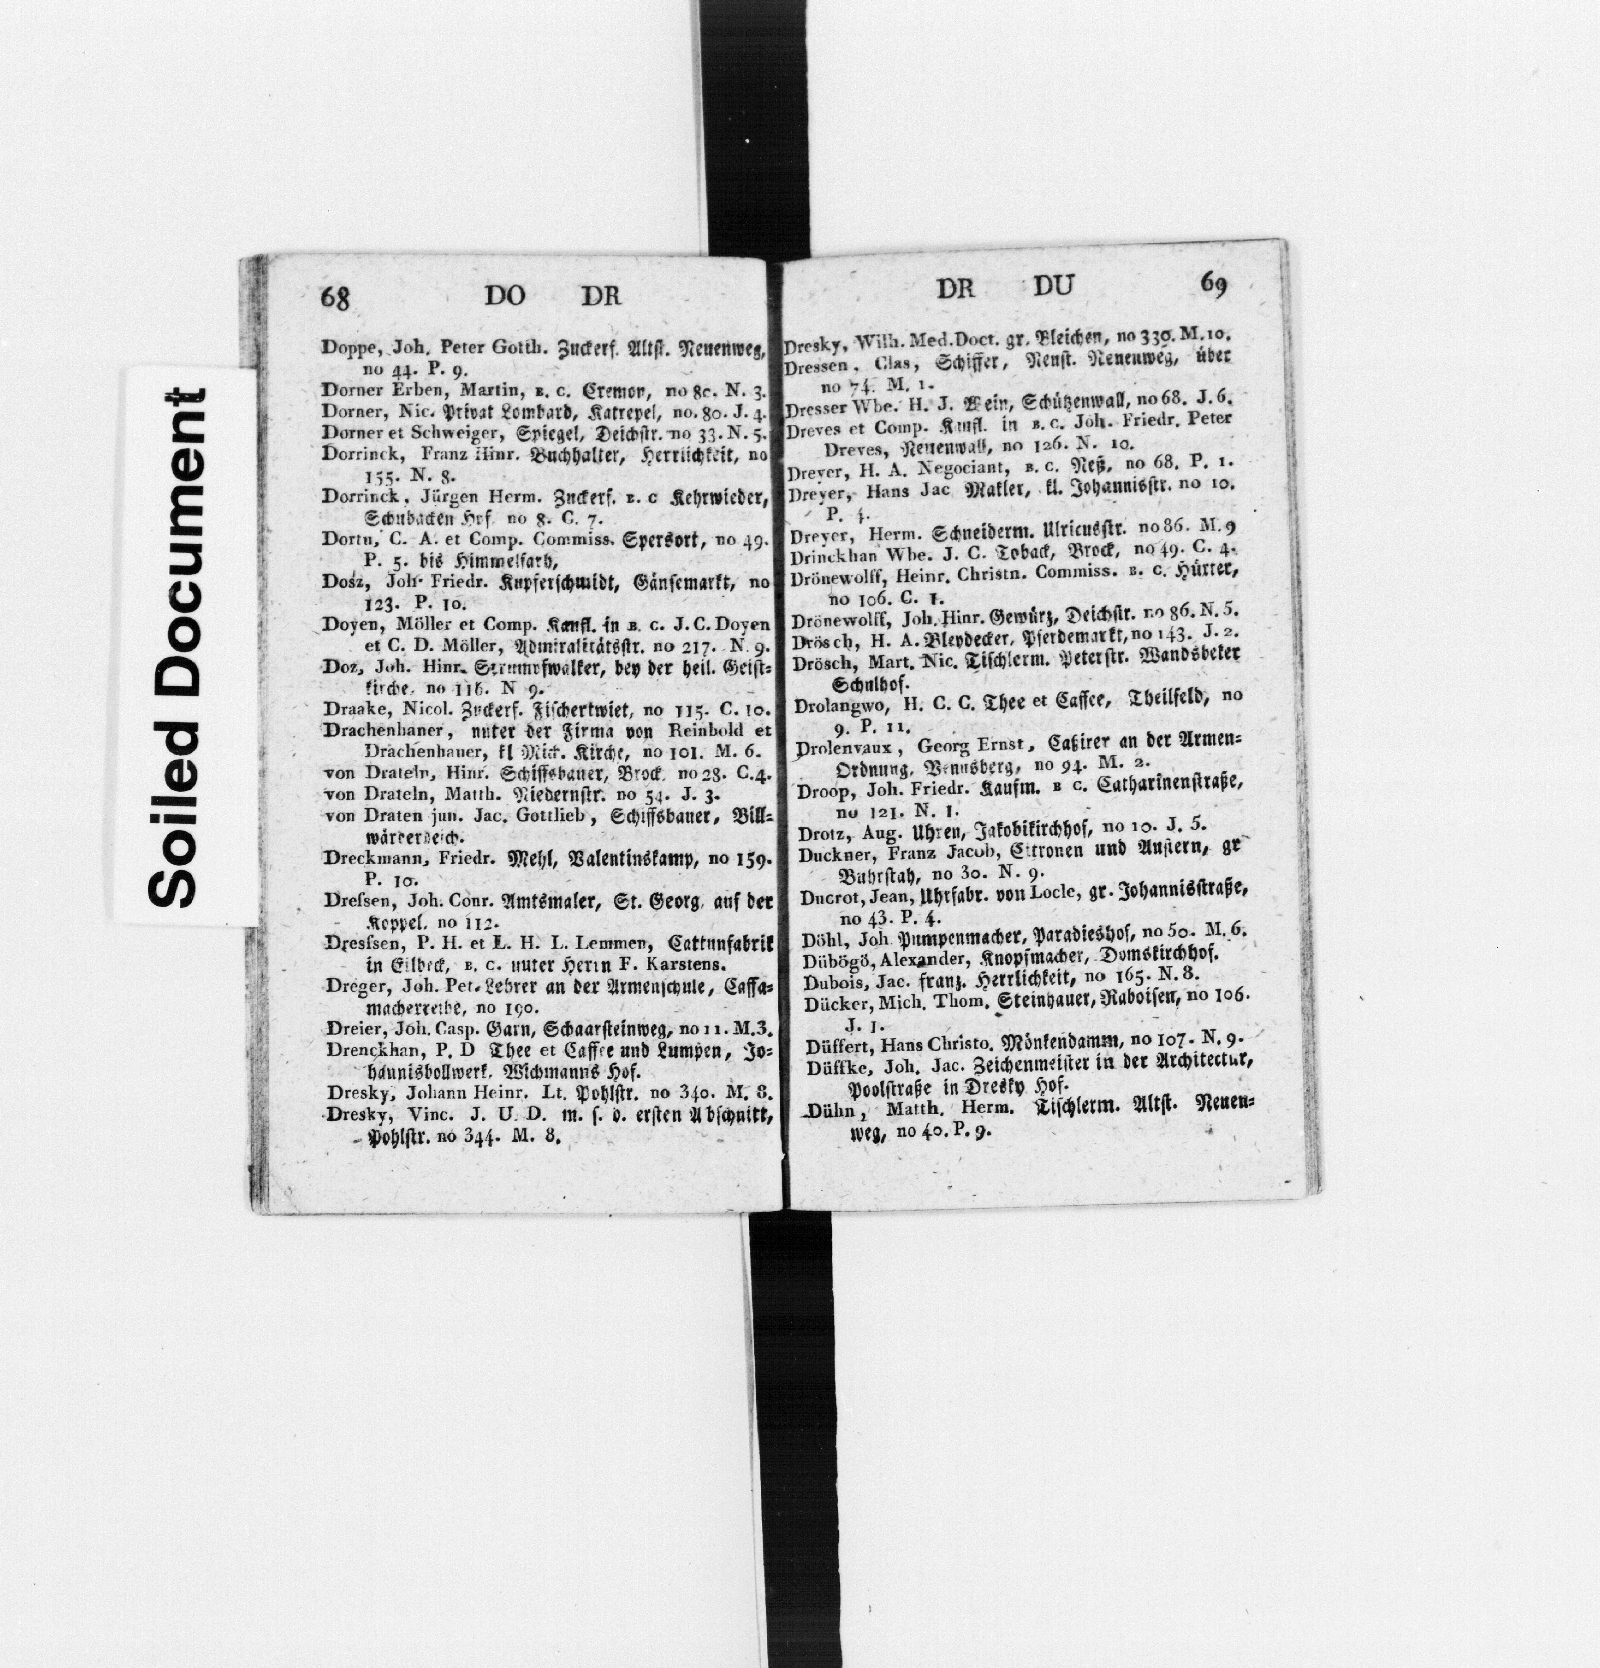 Soiled Document
68 DO DR
Doppe, Joh. Peter Gotth. Zuckerf. Altst. Neuenweg,
no 44. P. 9.
Dorner Erben, Martin, B. C. Cremon, no 80. N. 3.
Dorner, Nic. Privat Lombard, Katrepel, no. 80. J. 4.
Dorner et Schweiger, Spiegel, Deichstr. no 33. N. 5.
Dorrinck, Franz Hinr. Buchhalter, Herrlichkeit, no
155. N. 8.
Dorrinck, Jürgen Herm. Zuckerf. B. C Kehrwieder,
Schubacken Hof no 8. C. 7.
Dortu, C. A. et Comp. Commiss. Spersort, no 49.
P. 5. bis Himmelfarth,
Dosz, Joh. Friedr. Kupferschmidt, Gänsemarkt, no
123. P. 10.
Doyen, Möller et Comp. Kaufl. in B. C. J. C. Doyen
et C. D. Möller, Admiralitätsstr. no 217. N. 9.
Doz, Joh. Hinr. Strumpfwalker, bey der heil. Geist-
kirche, no 116. N 9.
Draake, Nicol. Zuckerf. Fischertwiet, no 115. C. 10.
Drachenhauer, unter der Firma von Reinbold et
Drachenhauer, kl Mich. Kirche, no 101. M. 6.
von Drateln, Hinr. Schiffsbauer, Brock. no 28. C. 4.
von Drateln, Matth. Niedernstr. no 54. J. 3.
von Draten jun. Jac. Gottlieb, Schiffsbauer, Bill-
wärderdeich.
Dreckmann, Friedr. Mehl, Valentinskamp, no 159.
P. 10.
Dreſsen, Joh. Conr. Amtsmaler, St. Georg, auf der
Koppel, no 112.
Dresſsen, P. H. et L. H. L. Lemmen, Cattunfabrik
in Eilbeck, B. C. unter Herrn F. Karstens.
Dreger, Joh. Pet. Lehrer an der Armenschule, Caffa-
macherreihe, no 190.
Dreier, Joh. Casp. Garn, Schaarsteinweg, no 11. M. 3.
Drenckhan, P. D Thee et Caffee und Lumpen, Jo-
hannisbollwerk, Wichmanns Hof.
Dresky, Johann Heinr. Lt. Pohlstr. no 340. M. 8.
Dresky, Vinc. J. U. D. m. s. d. ersten Abschnitt,
Pohlstr. no 344. M. 8.
DR DU 69
Dresky, Wilh. Med. Doct. gr. Bleichen, no 330. M. 10.
Dressen, Clas, Schiffer, Neust. Neuenweg, über
no 74. M. 1.
Dresser Wbe. H. J. Wein, Schützenwall, no 68. J. 6.
Dreves et Comp. Kaufl. in B. C. Joh. Friedr. Peter
Dreves, Neuenwall, no 126. N. 10.
Dreyer, H. A. Negociant, B. C. Neß, no 68. P. 1.
Dreyer, Hans Jac Makler, kl. Johannisstr. no 10.
P. 4.
Dreyer, Herm. Schneiderm. Ulricusstr. no 86. M. 9
Drinckhan Wbe. J. C. Toback, Brock, no 49. C. 4.
Drönewolff, Heinr. Christn. Commiss. B. C. Hüxter,
no 106. C. 1.
Drönewolff, Joh. Hinr. Gewürz, Deichstr. no 86. N. 5.
Drösch, H. A. Bleydecker, Pferdemarkt, no 143. J. 2.
Drösch, Mart. Nic. Tischlerm. Peterstr. Wandsbeker
Schulhof.
Drolangwo, H. C. C. Thee et Caffee, Theilfeld, no
9. P. 11.
Drolenvaux, Georg Ernst, Caßirer an der Armen-
Ordnung, Venusberg, no 94. M. 2.
Droop, Joh. Friedr. Kaufm. B C. Catharinenstraße,
no 121. N. 1.
Drotz, Aug. Uhren, Jakobikirchhof, no 10. J. 5.
Duckner, Franz Jacob, Citronen und Austern, gr
Buhrstah, no 30. N. 9.
Ducrot, Jean, Uhrfabr. von Locle, gr. Johannisstraße,
no 43. P. 4.
Döhl, Joh Pumpenmacher, Paradieshof, no 50. M. 6.
Dübögö, Alexander, Knopfmacher, Domskirchhof.
Dubois, Jac. franz. Herrlichkeit, no 165. N. 8.
Dücker, Mich. Thom. Steinhauer, Raboisen, no 106.
J. 1.
Düffert, Hans Christo. Mönkendamm, no 107. N. 9.
Düffke, Joh. Jac. Zeichenmeister in der Architectur,
Poolstraße in Dresky Hof.
Dühn, Matth. Herm. Tischlerm. Altst. Neuen-
weg, no 40. P. 9.